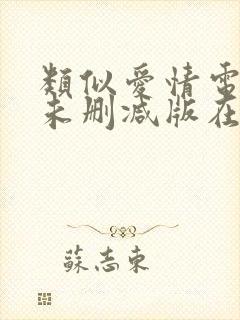 類似愛情電
未刪減版在
蘇志東